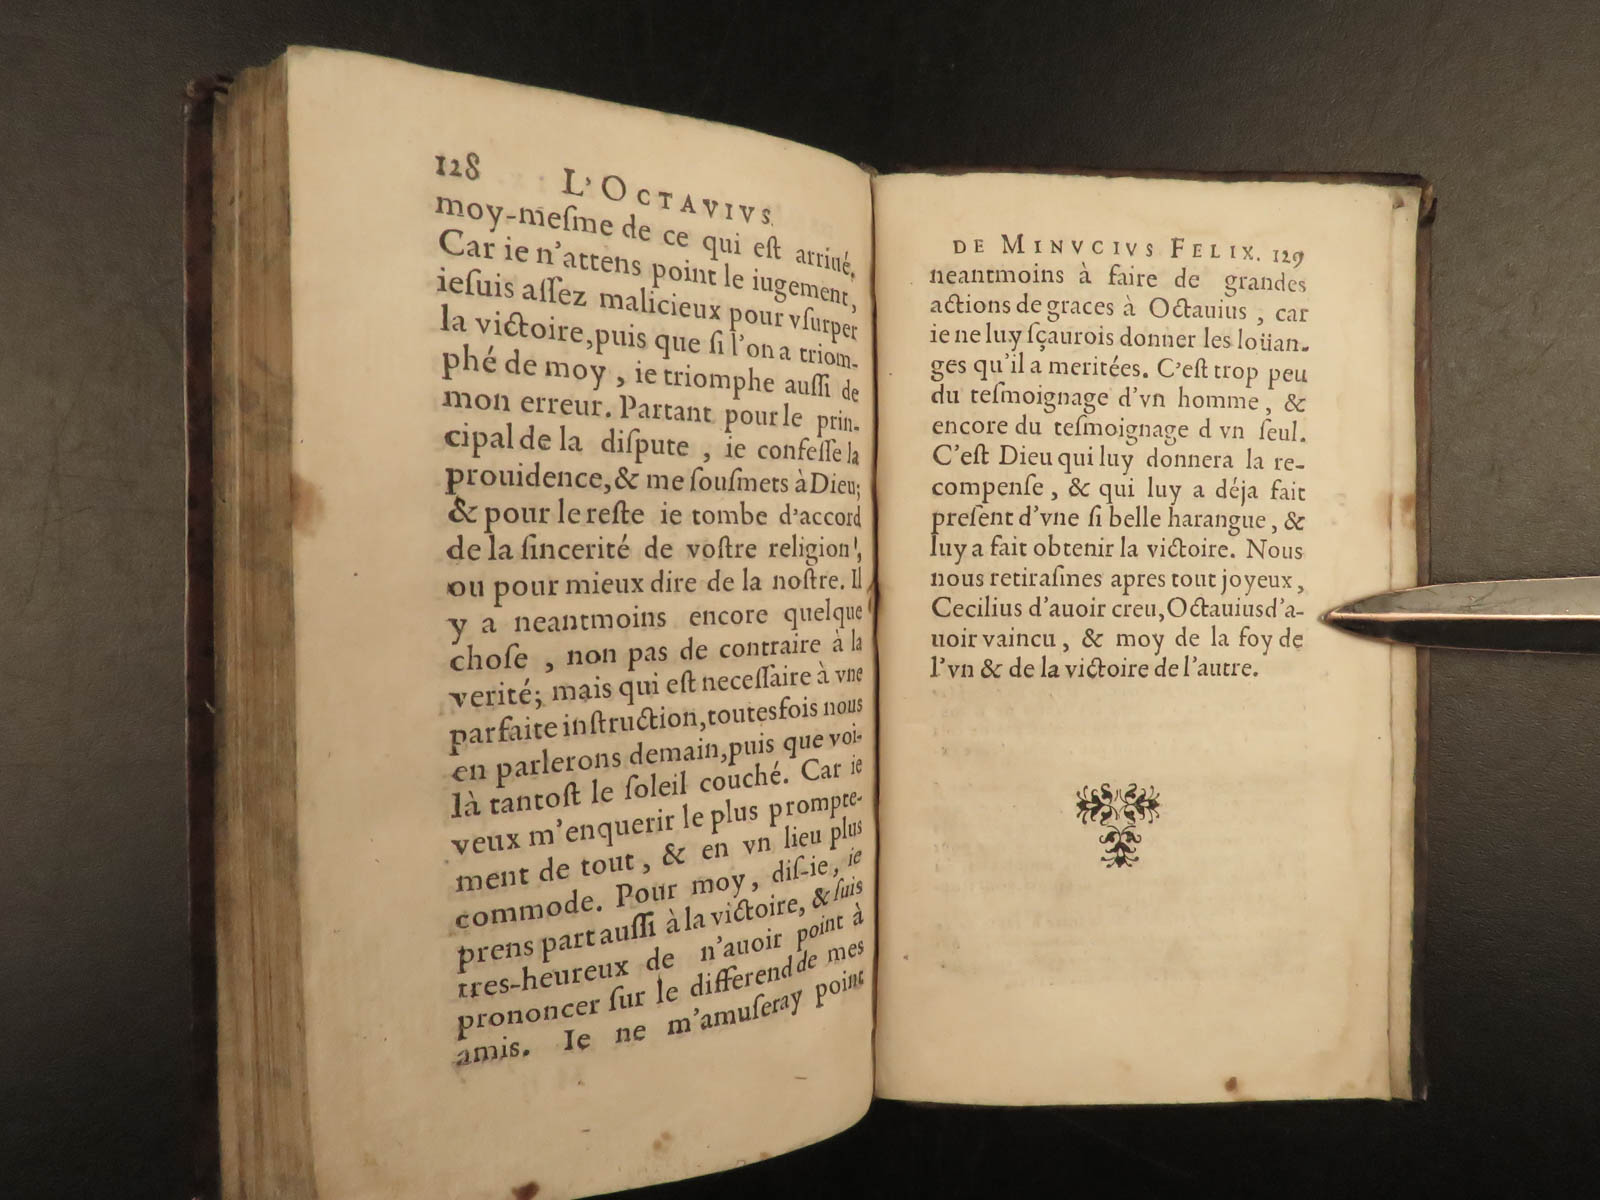 128 L'OCTAVIVS.
moy-meſme de ce qui eſt arriué.
Car ie n'attens point le iugement,
ieſuis aſſez malicieux pour vſurper
la victoire, puis que ſi l'on a triom-
phé de moy , ie triomphe auſſi de
mon erreur. Partant pour le prin-
cipal de la diſpute , ie confeſſe la
prouidence, & me ſouſmets à Dieu;
& pour le reſte ie tombe d'accord
de la ſincerité de voſtre religion,
ou pour mieux dire de la noſtre. Il
y a neantmoins encore quelque
choſe , non pas de contraire à la
verité; mais qui eſt neceſſaire à vne
parfaite inſtruction, toutesfois nous
en parlerons demain, puis que voi-
là tantoſt le ſoleil couché. Car ie
veux m'enquerir le plus prompte-
ment de tout , & en vn lieu plus
commode. Pour moy , diſ-ie, ie
prens part auſſi à la victoire, & ſuis
tres-heureux de n'auoir point à
prononcer ſur le differend de mes
amis. Ie ne m'amuſeray point
DE MINVCIVS FELIX. 129
neantmoins à faire de grandes
actions de graces à Octauius , car
ie ne luy ſçaurois donner les loüan-
ges qu'il a meritées. C'eſt trop peu
du teſmoignage d'vn homme, &
encore du teſmoignage d vn ſeul.
C'eſt Dieu qui luy donnera la re-
compenſe , & qui luy a déja fait
preſent d'vne ſi belle harangue, &
luy a fait obtenir la victoire. Nous
nous retiraſmes apres tout joyeux,
Cecilius d'auoir creu, Octauius d'a-
uoir vaincu , & moy de la foy de
l'vn & de la victoire de l'autre.